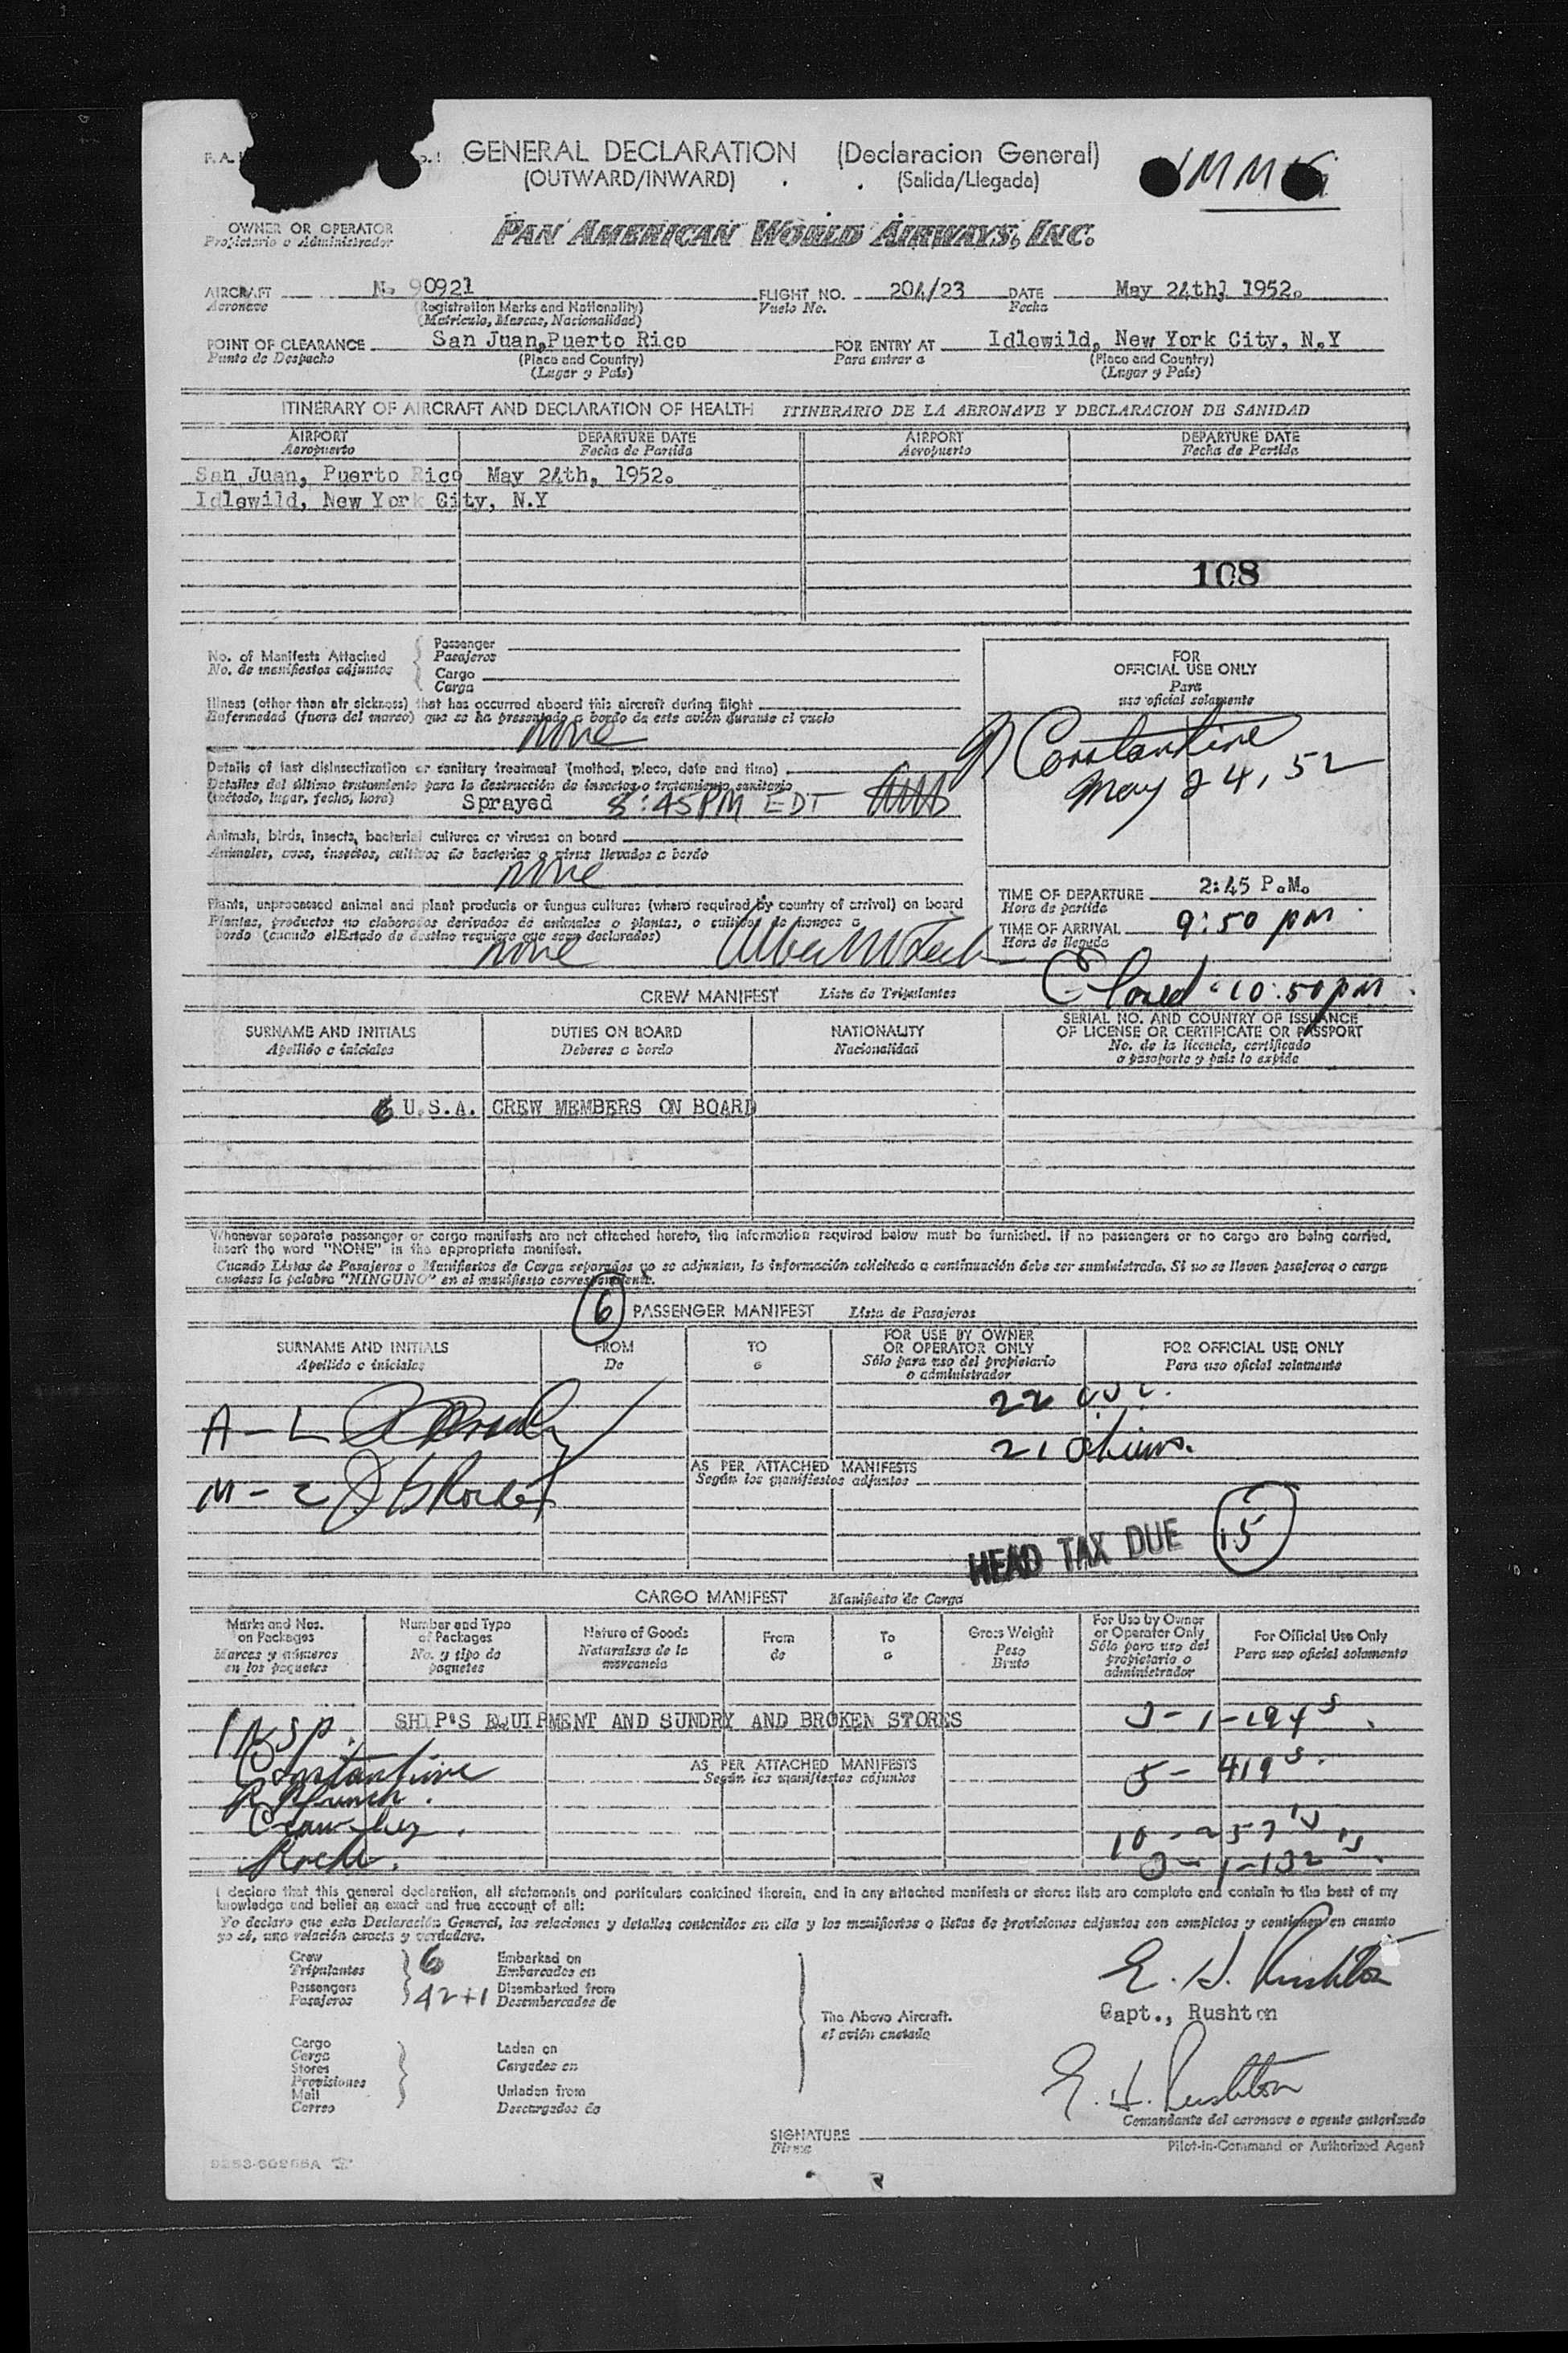 GENERAL DECLARATION (Declaracion General)
(OUTWARD/INWARD) (Salida/Llegada)
OWNER OR OPERATOR
Propietario o Administrador
PAN AMERICAN WORLD AIRWAYS, INC.
AIRCRAFT N. 90921 FLIGHT NO. 204/23 DATE May 24th, 1952.
Aeronave (Registration Marks and Nationality) Vuelo No. Fecha
(Matricula, Marcas, Nacionalidad)
POINT OF CLEARANCE San Juan, Puerto Rico FOR ENTRY AT Idlewild, New York City, N.Y
Punto de Despacho (Place and Country) Para entrar a (Place and Country)
(Lugar y País) (Lugar y País)
ITINERARY OF AIRCRAFT AND DECLARATION OF HEALTH ITINERARIO DE LA AERONAVE Y DECLARACION DE SANIDAD
AIRPORT DEPARTURE DATE AIRPORT DEPARTURE DATE
Aeropuerto Fecha de Partida Aeropuerto Fecha de Partida
San Juan, Puerto Rico May 24th, 1952.
Idlewild, New York City, N.Y
108
No. of Manifests Attached Passenger
No. de manifiestos adjuntos Pasajeros
Cargo
Carga
FOR
OFFICIAL USE ONLY
Para
uso oficial solamente
Illness (other than air sickness) that has occurred aboard this aircraft during flight
Enfermedad (fuera del mareo) que se ha presentado a bordo de este avión durante el vuelo
None
Constantine
May 24, 52
Details of last disinsectization or sanitary treatment (method, place, date and time)
Detalles del último tratamiento para la destrucción de insectos o tratamiento sanitario
(método, lugar, fecha, hora) Sprayed 8:45 PM EDT
Animals, birds, insects, bacterial cultures or viruses on board
Animales, aves, insectos, cultivos de bacterias o virus llevados a bordo
None
Plants, unprocessed animal and plant products or fungus cultures (where required by country of arrival) on board
Plantas, productos no elaborados derivados de animales o plantas, o cultivos de hongos a
bordo (cuando el Estado de destino requiere que sean declarados)
None
TIME OF DEPARTURE 2:45 P.M.
Hora de partida
TIME OF ARRIVAL 9:50 pm
Hora de llegada
Closed 10:50 pm
CREW MANIFEST Lista de Tripulantes
SURNAME AND INITIALS DUTIES ON BOARD NATIONALITY SERIAL NO. AND COUNTRY OF ISSUANCE
OF LICENSE OR CERTIFICATE OR PASSPORT
Apellido e iniciales Deberes a bordo Nacionalidad No. de la licencia, certificado
o pasaporte y país lo expide
6 U.S.A. CREW MEMBERS ON BOARD
Whenever separate passenger or cargo manifests are not attached hereto, the information required below must be furnished. If no passengers or no cargo are being carried,
insert the word "NONE" in the appropriate manifest.
Cuando Listas de Pasajeros o Manifiestos de Carga separados no se adjuntan, la información solicitada a continuación debe ser suministrada. Si no se lleven pasajeros o carga
anotese la palabra "NINGUNO" en el manifiesto correspondiente.
6 PASSENGER MANIFEST Lista de Pasajeros
SURNAME AND INITIALS FROM TO FOR USE BY OWNER
OR OPERATOR ONLY FOR OFFICIAL USE ONLY
Apellido e iniciales De a Sólo para uso del propietario
o administrador Para uso oficial solamente
22
A - L
21 aliens.
M - Z
AS PER ATTACHED MANIFESTS
Según los manifiestos adjuntos
HEAD TAX DUE 15
CARGO MANIFEST Manifiesto de Carga
Marks and Nos.
on Packages
Marcas y números
en los paquetes
Number and Type
of Packages
No. y tipo de
paquetes
Nature of Goods
Naturaleza de la
mercancía
From
de
To
a
Gross Weight
Peso
Bruto
For Use by Owner
or Operator Only
Sólo para uso del
propietario o
administrador
For Official Use Only
Para uso oficial solamente
Insp.
SHIP'S EQUIPMENT AND SUNDRY AND BROKEN STORES
Constantine
AS PER ATTACHED MANIFESTS
Según los manifiestos adjuntos
5 - 419
I declare that this general declaration, all statements and particulars contained therein, and in any attached manifests or stores lists are complete and contain to the best of my
knowledge and belief an exact and true account of all:
Yo declaro que esta Declaración General, las relaciones y detalles contenidos en ella y los manifiestos o listas de provisiones adjuntos son completos y contienen en cuanto
yo sé, una relación exacta y verdadera.
Crew
Tripulantes 6
Embarked on
Embarcados en
Passengers
Pasajeros 42+1
Disembarked from
Desembarcados de
E. H. Rushton
The Above Aircraft.
el avión anotado
Capt., Rushton
Cargo
Carga
Stores
Provisiones
Mail
Correo
Laden on
Cargados en
Unladen from
Descargados de
E. H. Rushton
Comandante del aeronave o agente autorizado
SIGNATURE
Firma
Pilot-in-Command or Authorized Agent